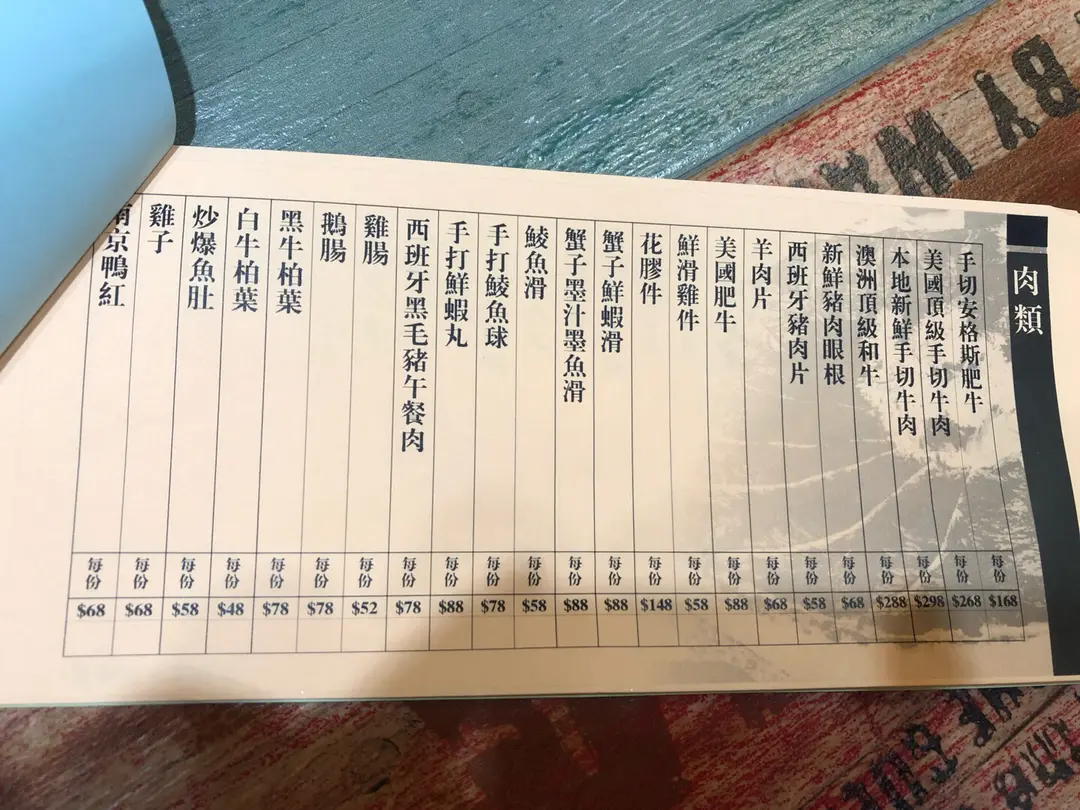 肉類
手切安格斯肥牛 每份 $168
美國頂級手切牛肉 每份 $268
本地新鮮手切牛肉 每份 $298
澳洲頂級和牛 每份 $288
新鮮豬肉眼根 每份 $68
西班牙豬肉片 每份 $58
羊肉片 每份 $68
美國肥牛 每份 $88
鮮滑雞件 每份 $58
花膠件 每份 $148
蟹子鮮蝦滑 每份 $88
蟹子墨汁墨魚滑 每份 $88
鯪魚滑 每份 $58
手打鯪魚球 每份 $78
手打鮮蝦丸 每份 $88
西班牙黑毛豬午餐肉 每份 $78
雞腸 每份 $52
鵝腸 每份 $78
黑牛柏葉 每份 $78
白牛柏葉 每份 $48
炒爆魚肚 每份 $58
雞子 每份 $68
南京鴨紅 每份 $68
BY